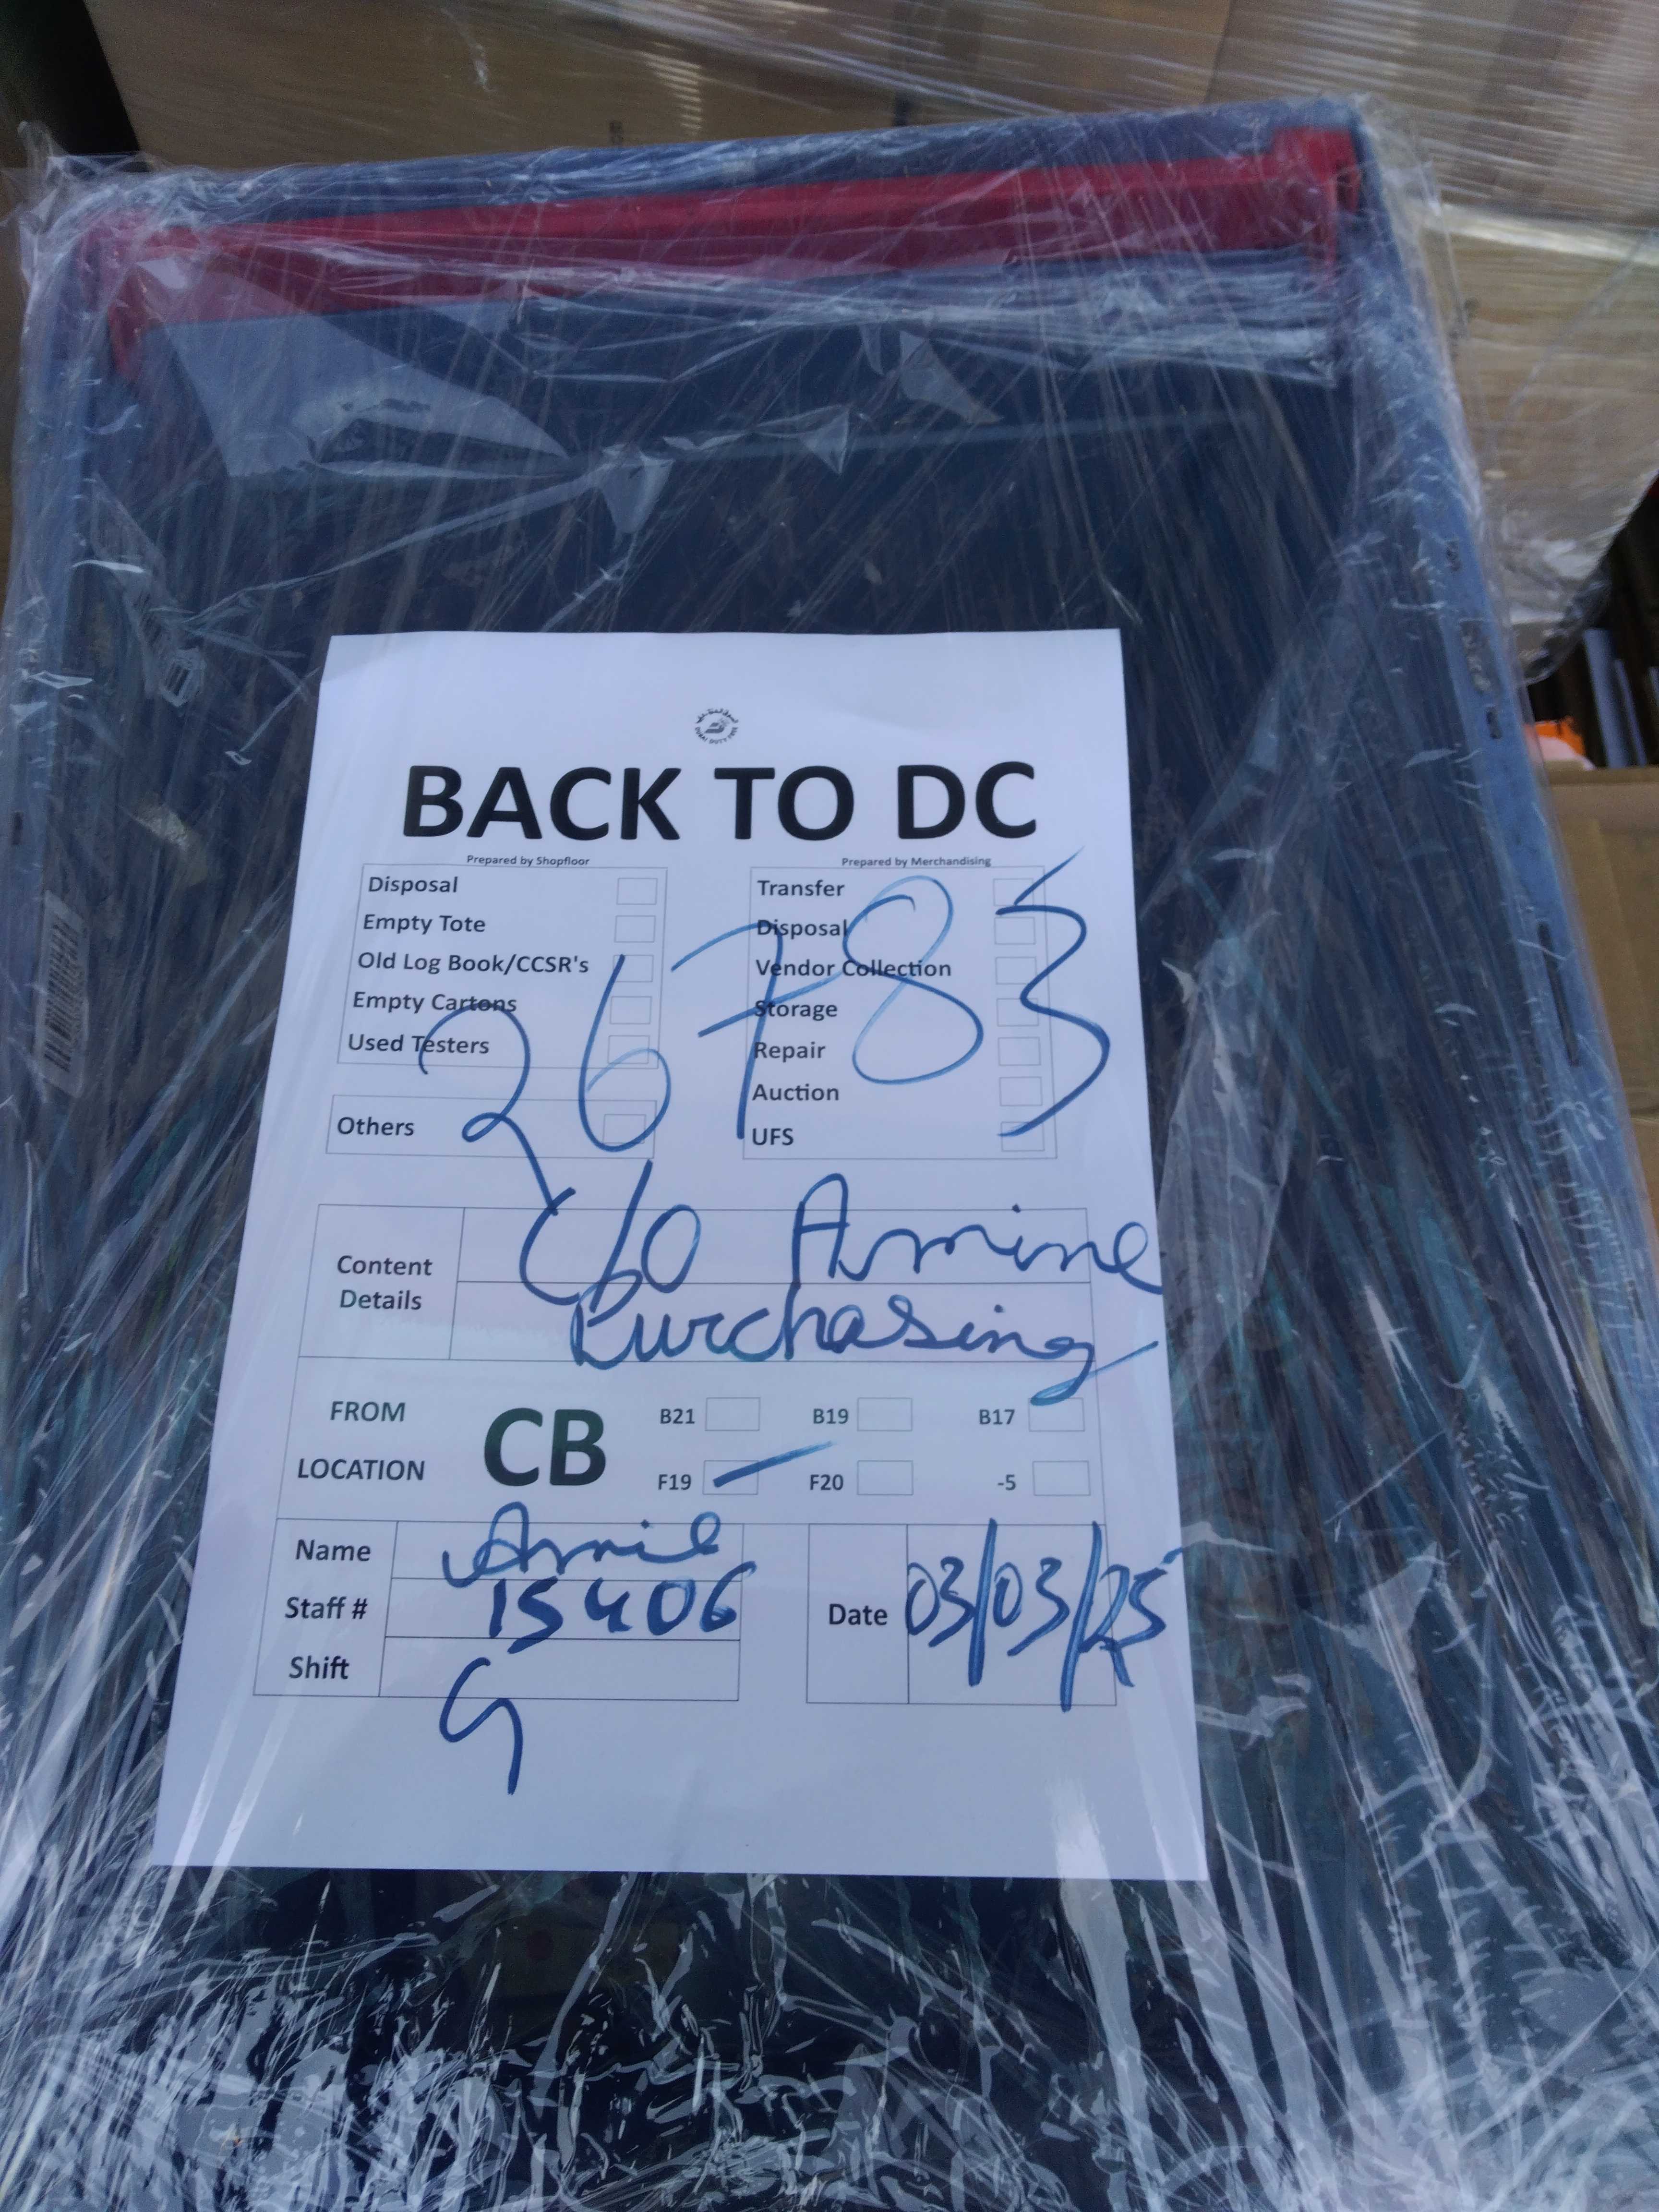 DUBAI DUTY FREE
BACK TO DC
Prepared by Shopfloor
Disposal
Empty Tote
Old Log Book/CCSR's
Empty Cartons
Used Testers
Others
Prepared by Merchandising
Transfer
Disposal
Vendor Collection
Storage
Repair
Auction
UFS
26783
Content Details
C/O Amine
Purchasing
FROM LOCATION
CB
B21 B19 B17
F19 F20 -5
Name
Staff # 15406
Shift G
Date 03/03/25